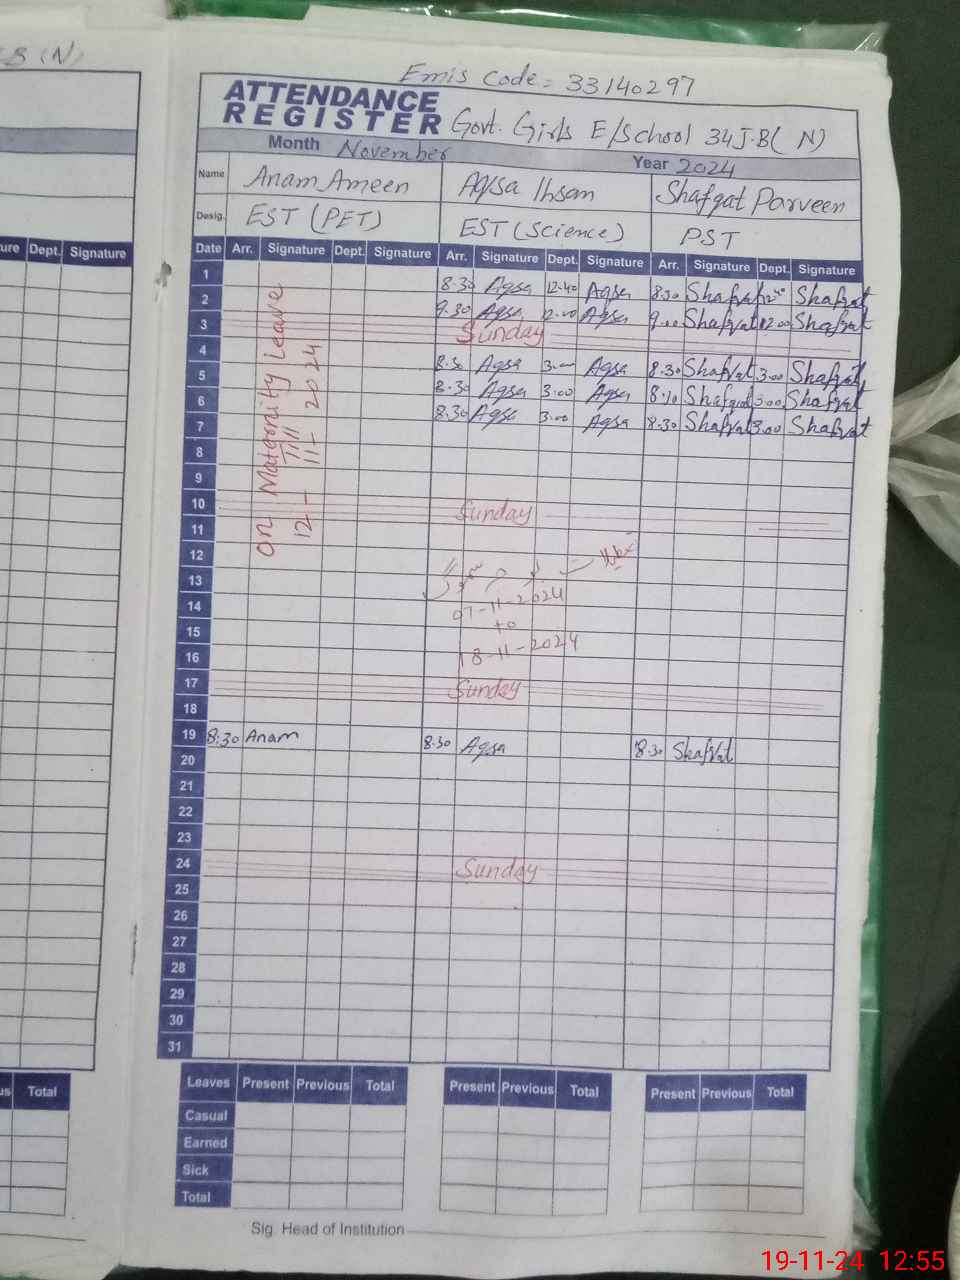 B (N)
Emis Code = 33140297
ATTENDANCE
REGISTER Govt. Girls E/School 34 J.B( N)
Month November Year 2024
Name Anam Ameen Aqsa Ihsan Shafqat Parveen
Desig. EST (PET) EST (Science) PST
ure Dept. Signature
Date Arr. Signature Dept. Signature Arr. Signature Dept. Signature Arr. Signature Dept. Signature
On Maternity Leave
12- 11- 2024
1 8.30 Aqsa 12.40 Aqsa 8.30 Shafqat 12.40 Shafqat
2 9.30 Aqsa Aqsa Shafqat 12.00 Shafqat
3 Sunday
4
5 8.30 Aqsa 3.00 Aqsa 8.30 Shafqat 3.00 Shafqat
6 8.30 Aqsa 3.00 Aqsa Shafqat 3.00 Shafqat
7 8.30 Aqsa 3.00 Aqsa 8.30 Shafqat 3.00 Shafqat
8
9
10 Sunday
11
12
13
07-11-2024
14
to
15
18-11-2024
16
17 Sunday
18
19 8:30 Anam 8.30 Aqsa 8.30 Shafqat
20
21
22
23
24 Sunday
25
26
27
28
29
30
31
us Total
Leaves Present Previous Total Present Previous Total Present Previous Total
Casual
Earned
Sick
Total
Sig. Head of Institution
19-11-24 12:55